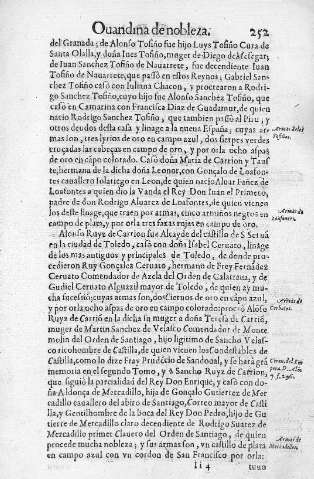 Ouandina de nobleza. 252
del Granada; de Alonso Tosiño fue hijo Luys Tosiño Cura de
Santa Olalla, y doña Ines Tosiño, muger de Diego de
de Iuan Sanchez Tosiño de Nauarrete, fue decendiente Iuan
Tosiño de Nauarrete, que passó en estos Reynos; Gabriel San-
chez Tosiño casó con Iuliana Chacon, y procrearon a Rodri-
go Sanchez Tosiño, cuyo hijo fue Alonso Sanchez Tosiño, que
casó en Camarina con Francisca Diaz de Guadarnur, de quien
nacio Rodrigo Sanchez Tosiño, que tambien passó al Piru; y
otros deudos desta casa y linage a la nueua España; cuyas ar-
mas son, tres lyrios de oro en campo azul, dos sierpes verdes
trocadas las cabeças en campo de oro, y por orla ocho aspas
de oro en campo colorado. Casó doña Maria de Carrion y Tau-
te, hermana de la dicha doña Leonor, con Gonçalo de Loafon-
tes cauallero
tes a quien dio la Vanda el Rey Don Iuan el Primero,
padre de don Rodrigo Aluarez de Loafontes, de quien vienen
los deste linage, que traen por armas, cinco armiños negros en
campo de plata, y por orla tres faxas rojas en campo de oro.
Alonso Ruyz de Carrion fue Alcayde del castillo de S.
en la ciudad de Toledo, casó con doña Isabel Ceruato, linage
de los mas antiguos y principales de Toledo, de donde pro-
cedieron Ruy Gonçalez Ceruato, hermano de Frey Fernandez
Ceruato Comendador de Azeca del Orden de Calatraua, y de
Gudiel Ceruato Alguazil mayor de Toledo, de quien ay mu-
cha sucession; cuyas armas son, dos Ciervos de oro en campo azul,
y por orla ocho aspas de oro en campo colorado: procreó Alõso
Ruyz de Carrió en la dicha su muger a doña Teresa de Carrió,
muger de Martin Sanchez de Velasco Comendador de Monte
molin del Orden de Santiago, hijo ligitimo de Sancho Velas-
co ricohombre de Castilla, de quien vienen los Condestables de
Castilla, como lo dize Fray Prudécio de Sandoual, y se hará
memoria en el segundo Tomo, y à Sancho Ruyz de Carrion,
que siguió la parcialidad del Rey Don Enrique, y casó con do-
ña Aldonça de Mercadillo, hija de Gonçalo Gutierrez de Mer-
cadillo cauallero del abito de Santiago, Correo mayor de Casti-
lla, y Gentilhombre de la boca del Rey Don Pedro, hijo de Gu-
tierre de Mercadillo claro decendiente de Rodrigo Suarez de
Mercadillo primer Clauero del Orden de Santiago, de quien
procede mucha nobleza; y sus armas son, vn castillo de plata
en campo azul con vn cordon de San Francisco por orla:
Ii 4 tuuo
Armas de los
Tosiños.
Armas de
Loafontes.
Armas de
Ceruatos.
Armas de
Mercadillos.